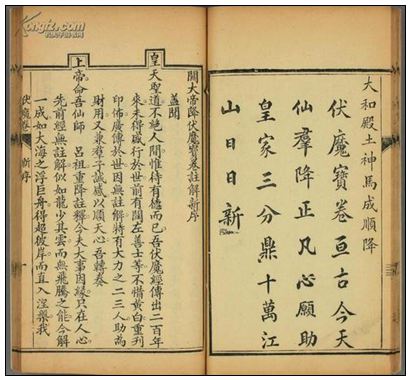 大和殿土神馬成順降
伏魔寶卷亘古今天
仙羣降正凡心願助
皇家三分鼎十萬江
山日日新
關大帝降伏魔寶卷註解新序
蓋聞
皇天聖道不絕人間惟待有德而已吾伏魔經傳出二百年
來未得盛行於世前有關左善士等不惜黃白重刊
印佈廣傳於世因無註解將有大力之二三人助為
財用又兼羣子誠感以順天心吾轉奏
上帝命吾仙師 呂祖重降註釋今夫大事因緣只在人心
先前經無註解似如龍少其雲而無飛騰之能今解
一成如大海之浮巨舟得超彼岸而直入涅槃我
伏魔卷 新序
一